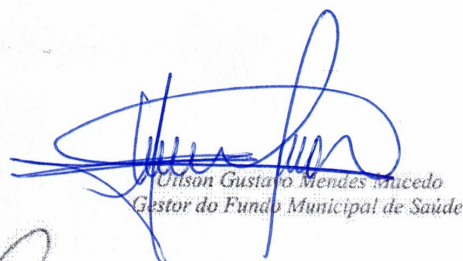 Uilson Gustavo Mendes Macedo
Gestor do Fundo Municipal de Saúde